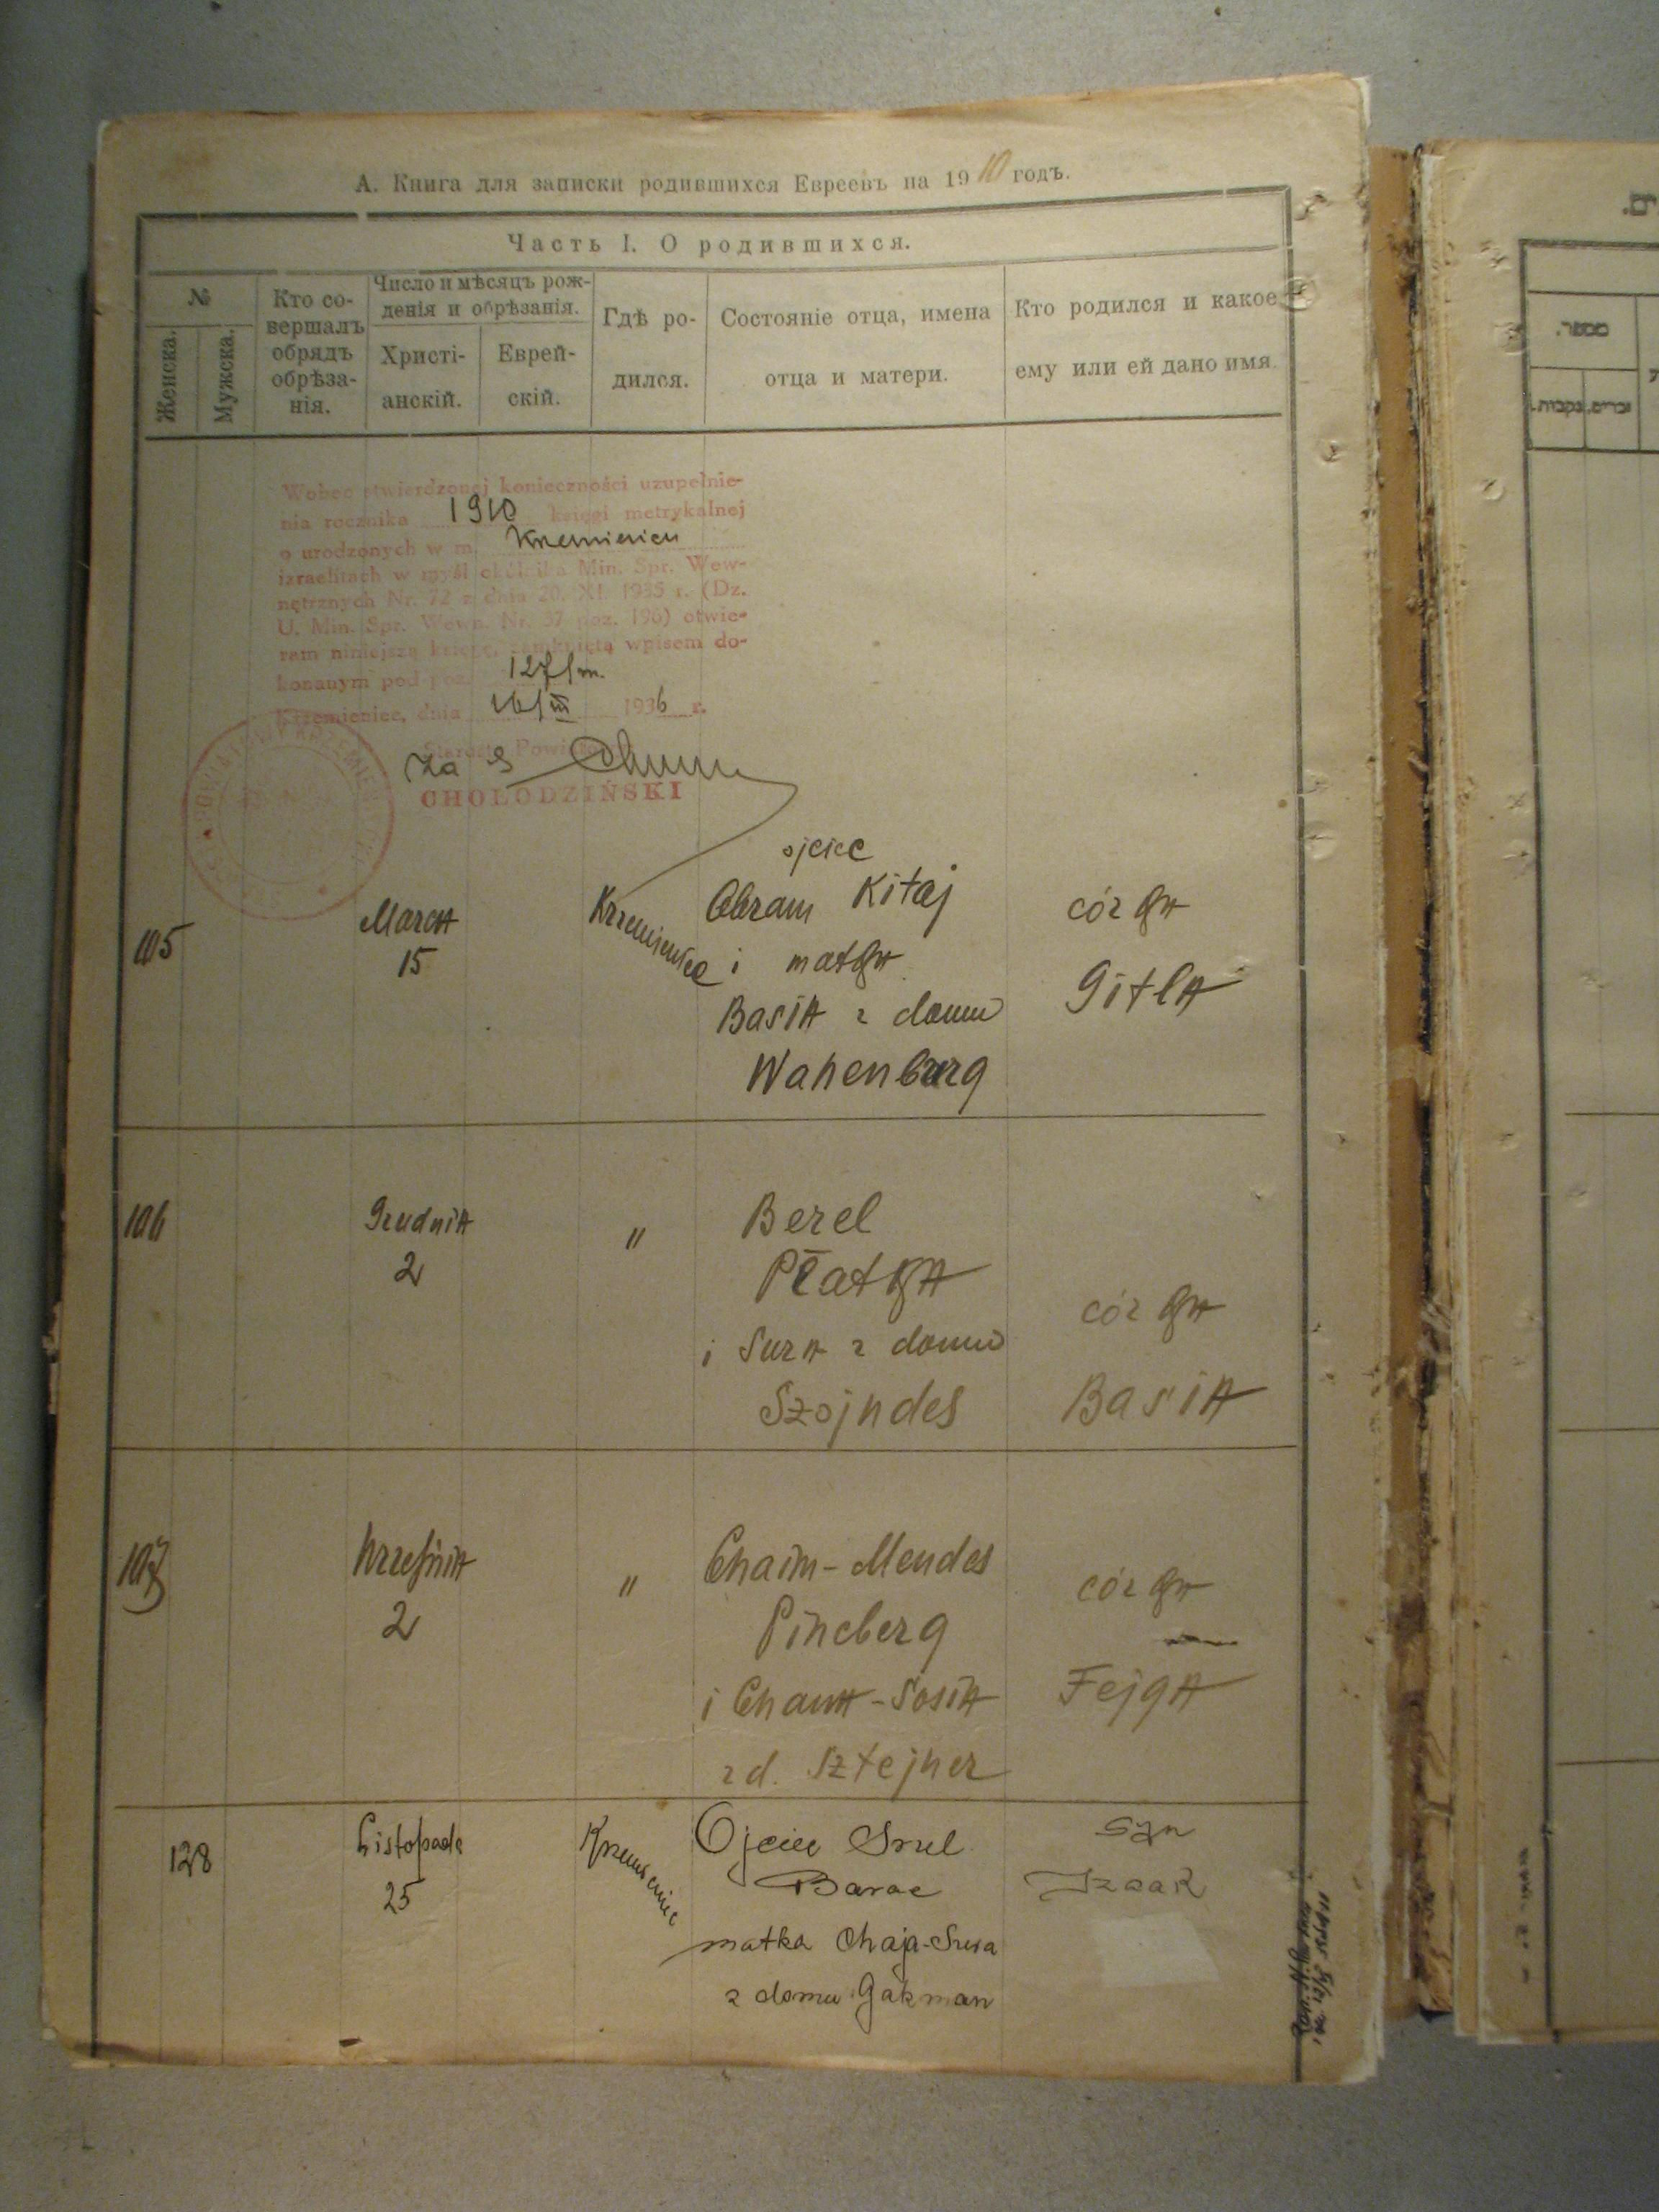 А. Книга для записки родившихся Евреевъ на 1910 годъ.
Часть I. О родившихся.
№
Женска.
Мужска.
Кто со-
вершалъ
обрядъ
обрѣза-
нія.
Число и мѣсяцъ рож-
денія и обрѣзанія.
Христі-
анскій.
Еврей-
скій.
Гдѣ ро-
дился.
Состояніе отца, имена
отца и матери.
Кто родился и какое
ему или ей дано имя.
Wobec stwierdzonej konieczności uzupełnie-
nia rocznika 1910 księgi metrykalnej
o urodzonych w m. Krzemieńcu
izraelitach w myśl okólnika Min. Spr. Wew-
nętrznych Nr. 72 z dnia 20. XI. 1935 r. (Dz.
U. Min. Spr. Wewn. Nr. 37 poz. 196) otwie-
ram niniejszą księgę, zamkniętą wpisem do-
konanym pod poz. 127/m.
Krzemieniec, dnia 16/III 1936 r.
Starosta Powiatowy
za
CHOŁODZIŃSKI
105
Marca
15
Krzemieniec
ojciec
Abram Kitaj
i matka
Basia z domu
Wahenberg
córka
Gitla
106
Grudnia
2
"
Berel
Płatka
i Sura z domu
Szojndes
córka
Basia
107
Września
2
"
Chaim-Mendes
Pineberg
i Chana-Sosia
z d. Sztejner
córka
Fejga
128
Listopada
25
Krzemieniec
Ojciec Srul
Barac
matka Chaja-Sura
z domu Gakman
syn
Izaak